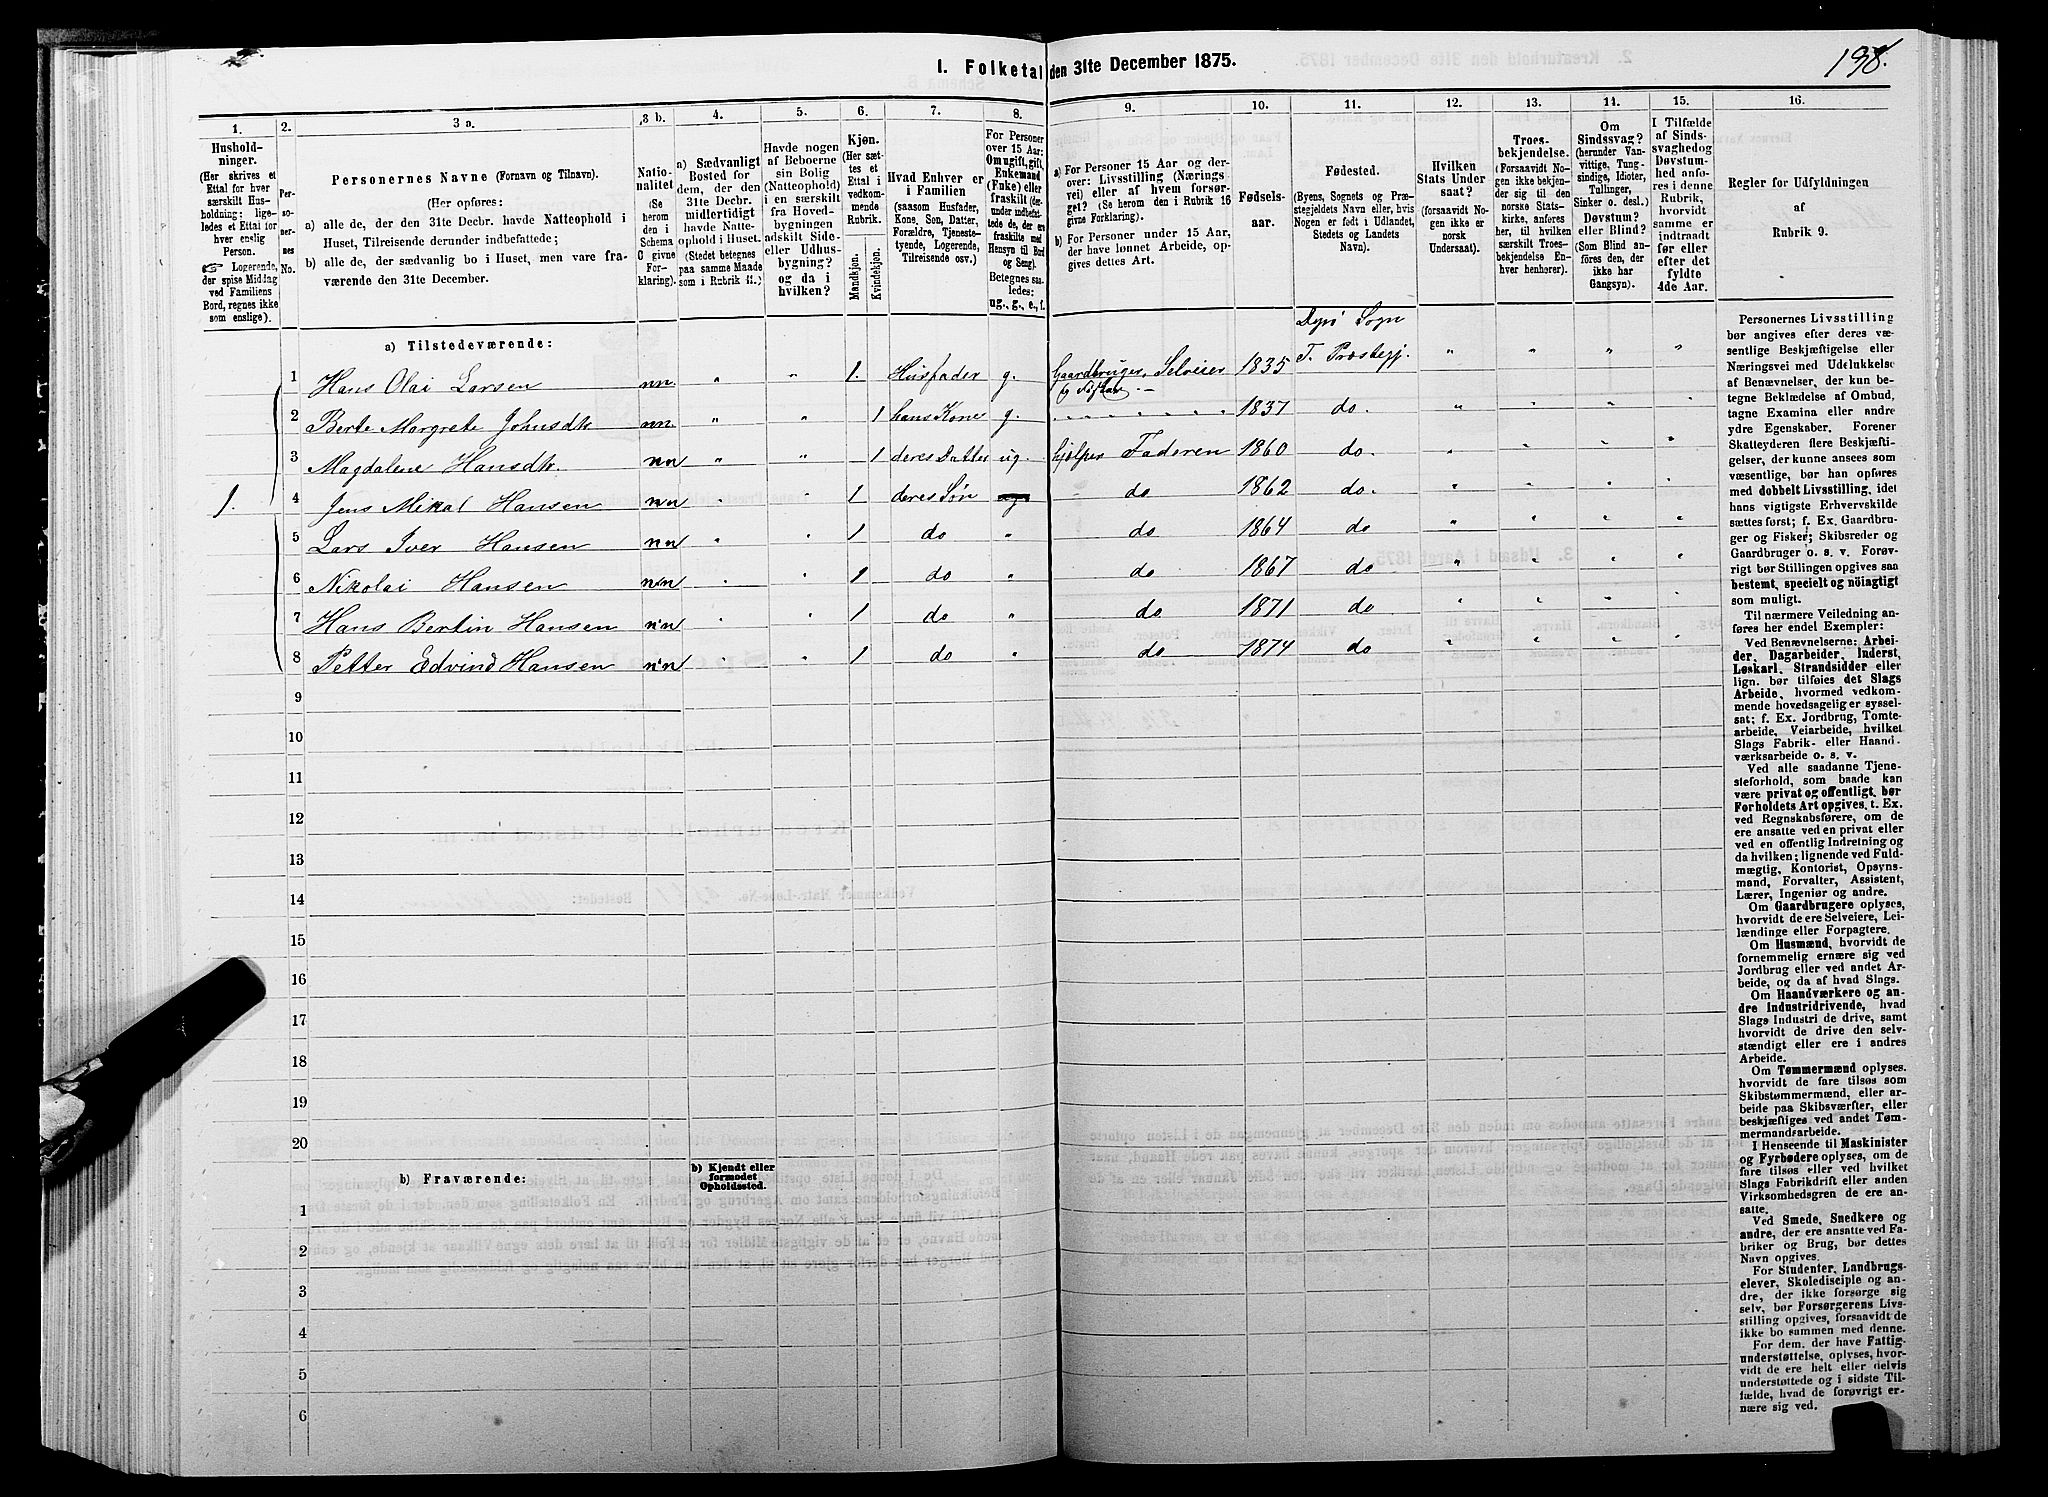 198.
I. Folketal den 31te December 1875.
1.
Hushold-
ninger.
(Her skrives et
Ettal for hver
særskilt Hus-
holdning; lige-
ledes et Ettal
for hver enslig
Person.
☞ Logerende,
der spise Middag
ved Familiens
Bord, regnes ikke
som enslige).
2.
Per-
so-
ner-
nes
No.
3 a.
Personernes Navne (Fornavn og Tilnavn).
(Her opføres:
a) alle de, der den 31te Decbr. havde Natteophold i
Huset, Tilreisende derunder indbefattede;
b) alle de, der sædvanlig bo i Huset, men vare fra-
værende den 31te December.
3 b.
Natio-
nalitet
(Se
herom
den i
Schema
C givne
For-
klaring).
4.
a) Sædvanligt
Bosted for
dem, der den
31te Decbr.
midlertidigt
havde Natte-
ophold i Huset.
(Stedet betegnes
paa samme Maade
som i Rubrik 11.)
5.
Havde nogen
af Beboerne
sin Bolig
(Natteophold)
i en særskilt
fra Hoved-
bygningen
adskilt Side-
eller Udhus-
bygning?
og da i
hvilken?
6.
Kjøn.
(Her sæt-
tes et
Ettal i
vedkom-
mende
Rubrik.
Mandkjøn.
Kvindekjøn.
7.
Hvad Enhver er
i Familien
(saasom Husfader,
Kone, Søn, Datter,
Forældre, Tjeneste-
tyende, Logerende,
Tilreisende osv.)
8.
For Personer
over 15 Aar:
Om ugift, gift,
Enkemand
(Enke) eller
fraskilt (der-
under indbefat-
tede de, der ere
fraskilte med
Hensyn til Bord
og Seng).
Betegnes saa-
ledes:
ug., g., e., f.
9.
a) For Personer 15 Aar og der-
over: Livsstilling (Nærings-
vei) eller af hvem forsør-
get? (Se herom den i Rubrik 16
givne Forklaring).
b) For Personer under 15 Aar,
der have lønnet Arbeide, op-
gives dettes Art.
10.
Fødsels-
aar.
11.
Fødested.
(Byens, Sognets og Præ-
stegjeldets Navn eller, hvis
Nogen er født i Udlandet,
Stedets og Landets
Navn).
12.
Hvilken
Stats Under
saat?
(forsaavidt No-
gen ikke er
norsk
Undersaat).
13.
Troes-
bekjendelse.
(Forsaavidt No-
gen ikke bekjen-
der sig til den
norske Stats-
kirke, anføres
her, til hvilken
særskilt Troes-
bekjendelse En-
hver henhører).
14.
Om
Sindssvag?
(herunder Van-
vittige, Tung-
sindige, Idioter,
Tullinger,
Sinker o. desl.)
Døvstum?
eller Blind?
(Som Blind an-
føres den, der
ikke har
Gangsyn).
15.
I Tilfælde
af Sinds-
svaghed og
Døvstum-
hed anfø-
res i denne
Rubrik,
hvorvidt
samme er
indtraadt
før eller
efter det
fyldte
4de Aar.
16.
Regler for Udfyldningen
af
Rubrik 9.
a) Tilstedeværende:
Dyrø Sogn
1 Hans Olai Larsen nn. " " 1. Husfader g. Gaardbruger, Selveier 1835 T. Præstegj. " " " "
2 Berte Margrete Johnsdtr nn. " " 1 hans Kone g. " 1837 do. " " " "
3 Magdalene Hansdtr. nn " " 1 deres Datter ug. hjelper Faderen 1860 do. " " " "
1. 4 Jens Mikal Hansen nn " " 1 deres Søn do 1862 do. " " " "
5 Lars Iver Hansen nn " " 1 do " do 1864 do " " " "
6 Nikolai Hansen nn " " 1 do " do 1867 do " " " "
7 Hans Bertin Hansen nn " " 1 do " do 1871 do " " " "
8 Petter Edvind Hansen nn " " 1 do " do 1874 do " " " "
9
10
11
12
13
14
15
16
17
18
19
20
b) Fraværende:
b) Kjendt eller
formodet
Opholdssted.
1
2
3
4
5
6
Personernes Livsstilling
bør angives efter deres væ-
sentlige Beskjæftigelse eller
Næringsvei med Udelukkelse
af Benævnelser, der kun be-
tegne Beklædelse af Ombud,
tagne Examina eller andre
ydre Egenskaber. Forener
Skatteyderen flere Beskjæfti-
gelser, der kunne ansees som
væsentlige, bør han opføres
med dobbelt Livsstilling, idet
hans vigtigste Erhvervskilde
sættes først; f. Ex. Gaardbru-
ger og Fisker; Skibsreder og
Gaardbruger o. s. v. Forøv-
rigt bør Stillingen opgives saa
bestemt, specielt og nöiagtigt
som muligt.
Til nærmere Veiledning an-
føres her endel Exempler:
Ved Benævnelserne: Arbei-
der, Dagarbeider, Inderst,
Løskarl, Strandsidder eller
lign. bør tilføies det Slags
Arbeide, hvormed vedkom-
mende hovedsagelig er syssel-
sat; f. Ex. Jordbrug, Tomte-
arbeide, Veiarbeide, hvilket
Slags Fabrik- eller Haand-
værksarbeide o. s. v.
Ved alle saadanne Tjene-
steforhold, som baade kan
være privat og offentligt, bør
Forholdets Art opgives, t. Ex.
ved Regnskabsførere, om de
ere ansatte ved en privat eller
ved en offentlig Indretning og
da hvilken; lignende ved Fuld-
mægtig, Kontorist, Opsyns-
mand, Forvalter, Assistent,
Lærer, Ingeniør og andre.
Om Gaardbrugere oplyses,
hvorvidt de ere Selveiere, Lei-
lændinge eller Forpagtere.
Om Husmænd, hvorvidt de
fornemmelig ernære sig ved
Jordbrug eller ved andet Ar-
beide, og da af hvad Slags.
Om Haandværkere og an-
dre Industridrivende, hvad
Slags Industri de drive, samt
hvorvidt de drive den selv-
stændigt eller ere i andres
Arbeide.
Om Tømmermænd oplyses.
hvorvidt de fare tilsøs som
Skibstømmermænd, eller ar-
beide paa Skibsværfter, eller
beskjæftiges ved andet Tøm-
mermandsarbeide.
I Henseende til Maskinister
og Fyrbødere oplyses, om de
fare tilsøs eller ved hvilket
Slags Fabrikdrift eller anden
Virksomhedsgren de ere an-
satte.
Ved Smede, Snedkere og
andre, der ere ansatte ved Fa-
briker og Brug, bør dettes
Navn opgives.
For Studenter, Landbrugs-
elever, Skoledisciple og an-
dre, der ikke forsørge sig
selv, bør Forsørgerens Livs-
stilling opgives, forsaavidt de
ikke bo sammen med denne.
For dem, der have Fattig-
understøttelse, oplyses, hvor-
vidt de ere helt eller delvis
understøttede og i sidste Til-
fælde, hvad de forøvrigt er-
nære sig ved.